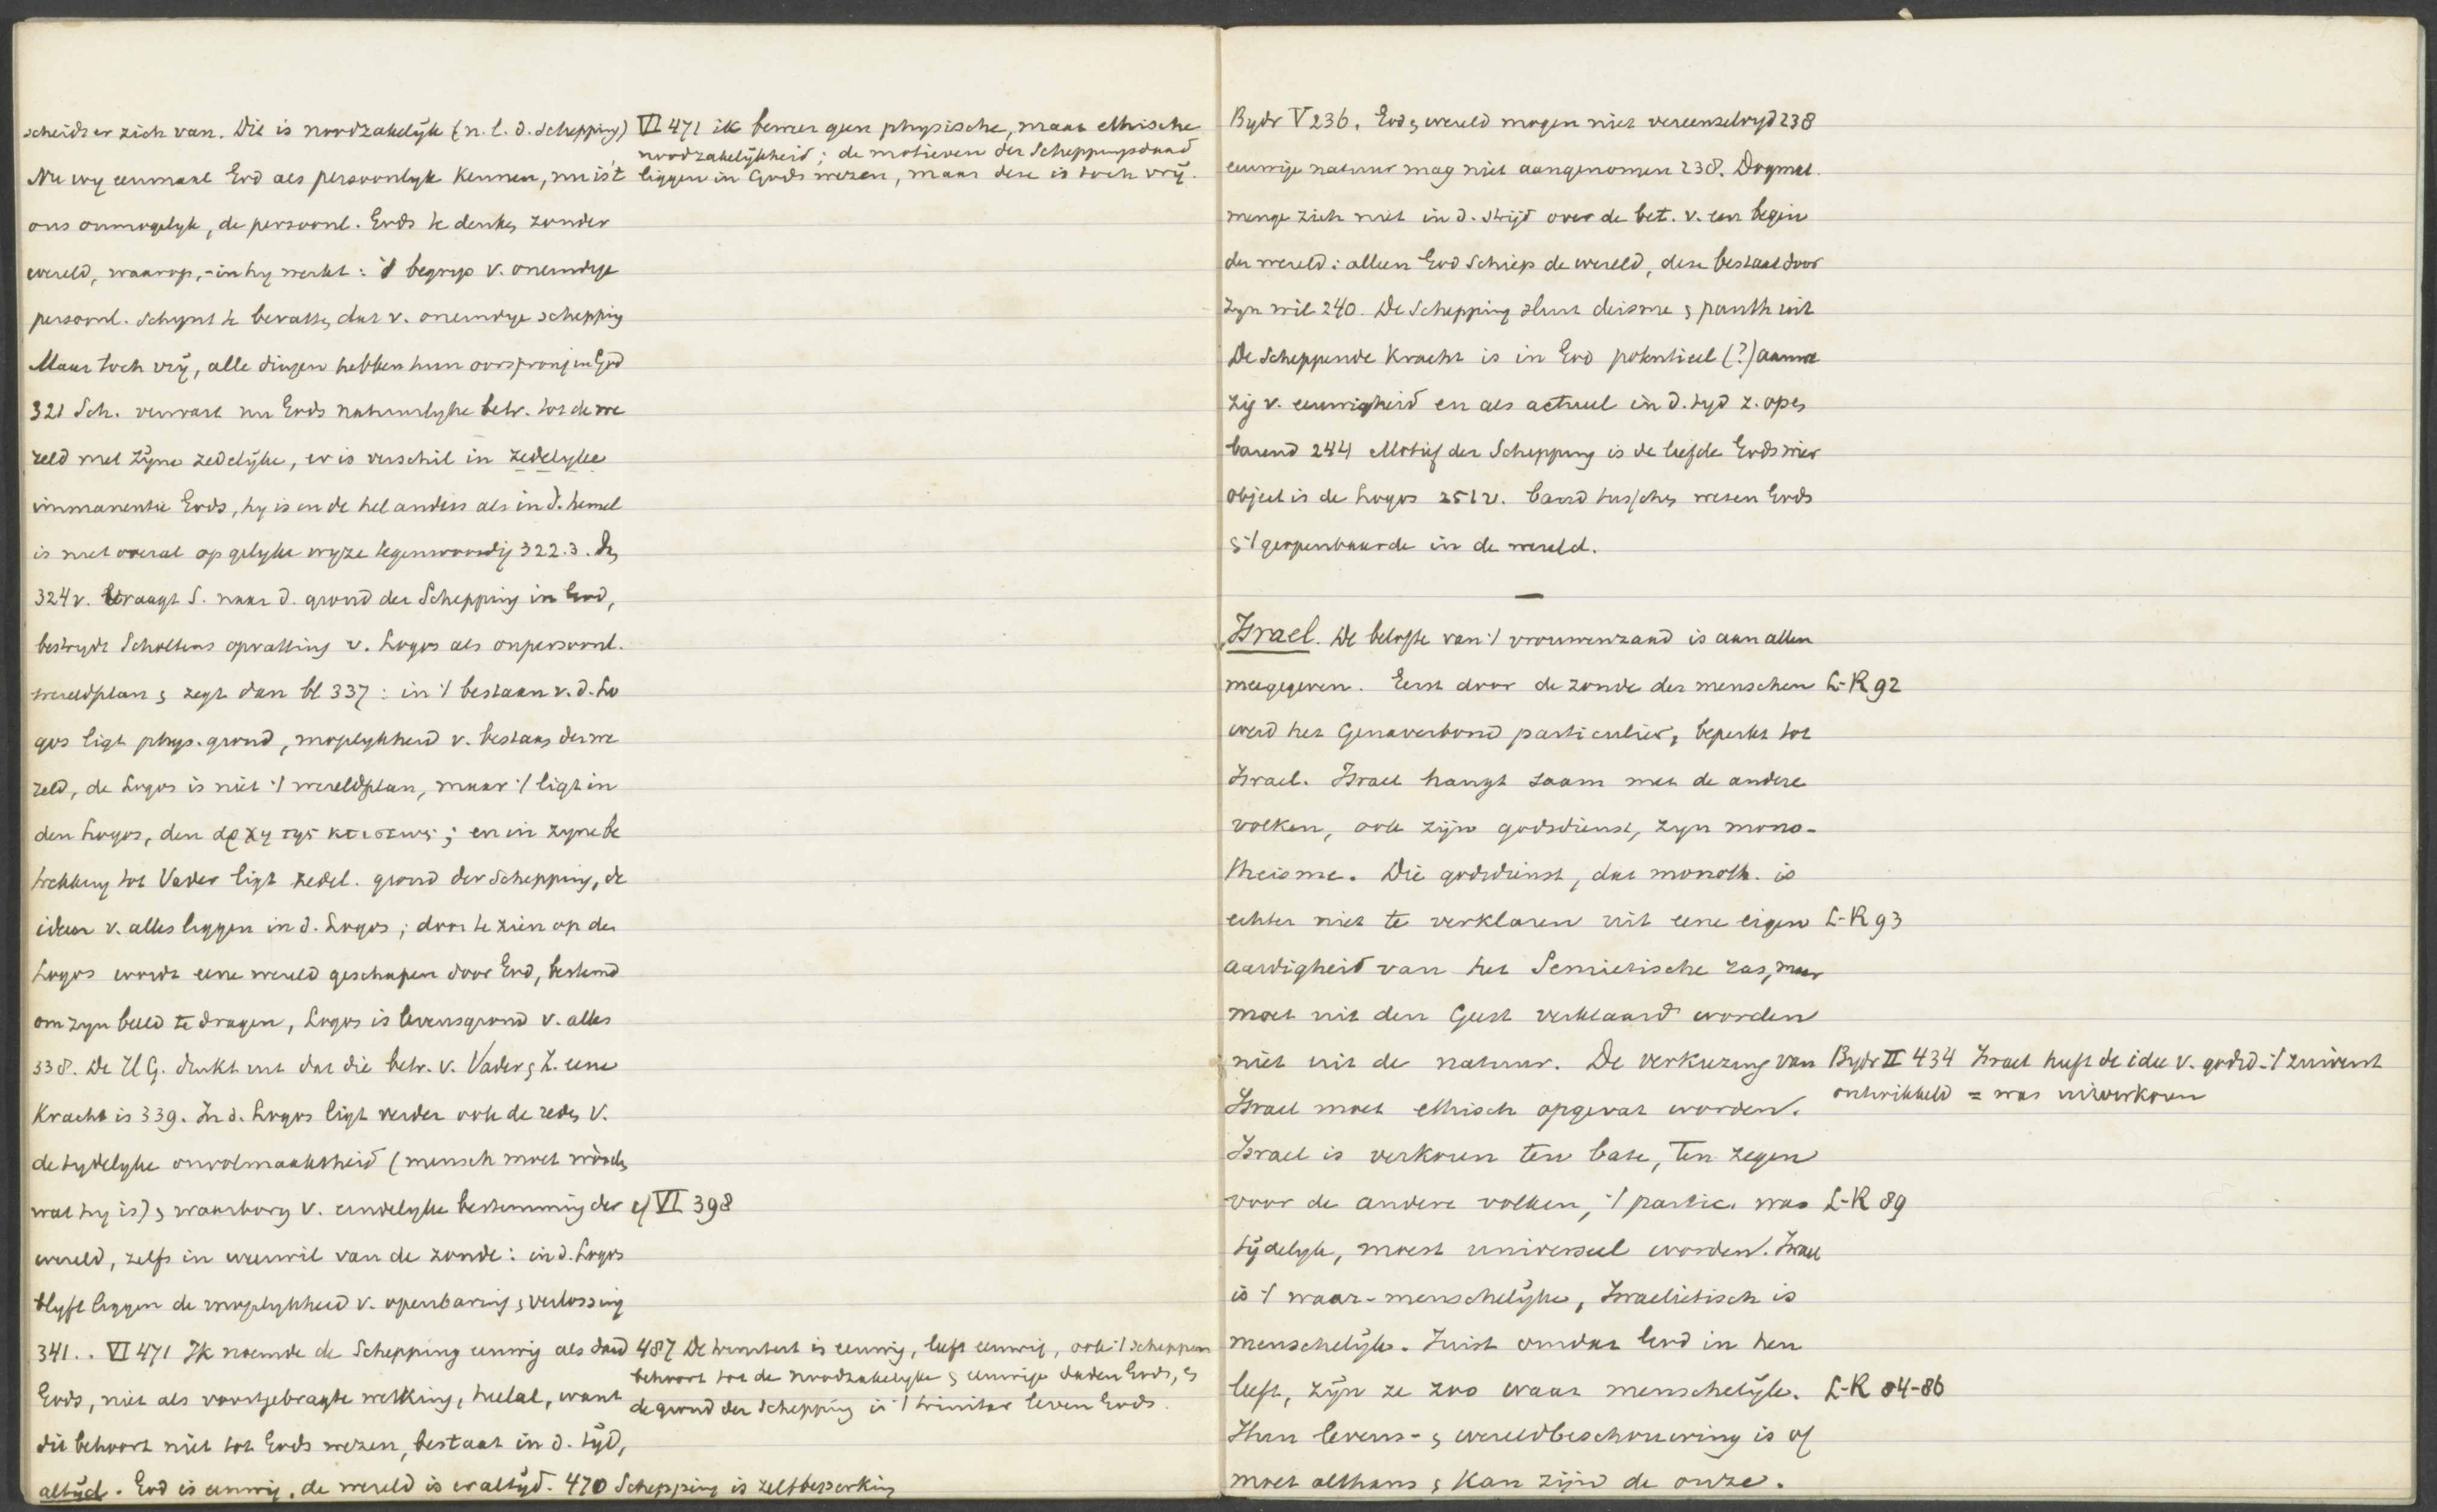 scheidt er zich van. Die is noodzakelijk (n.l. d. schepping)
Nu wy eenmaal God als persoonlyk kennen, nu is 't
ons onmogelyk, de persoonl. Gods te denken zonder
wereld, waarop, -in hy werkt: 't begrip v. oneindige
persoonl. schynt te bevatten dat v. oneindige schepping
Maar toch vrij, alle dingen hebben hun oorsprong in God
321 Sch. verwart nu Gods natuurlyke betr. tot de we
reld met zijne zedelijke, er is verschil in zedelyke
immanentie Gods, hy is in de hel anders als in d. hemel
is niet overal op gelyke wyze tegenwoordig 322.3.
324v. vraagt S. naar d. grond der Schepping in God,
bestrydt Scholtens opvatting v. Logos als onpersoonl.
wereldplan & zegt dan bl 337: in 't bestaan v. d. Lo
gos ligt phys. grond, mogelykheid v. bestaan der we
reld, de Logos is niet 't wereldplan, maar 't ligt in
den Logos, den αρχη της κτισεως; en in zyne be
trekking tot Vader ligt zedel. grond der schepping, de
ideen v. alles liggen in d. Logos; door te zien op den
Logos wordt eene wereld geschapen door God, bestemd
om zyn beeld te dragen, Logos is levensgrond v. alles
338. De H G. drukt uit dat die betr. v. Vader & Z. eene
Kracht is 339. In d. Logos ligt verder ook de reden v.
de tydelyke onvolmaaktheid (mensch moet worden
wat hy is) & waarborg v. eindelyke bestemming der
wereld, zelfs in weerwil van de zonde: in d. Logos
blyft liggen de mogelykheid v. openbaring & verlossing
341.. VI 471 Ik noemde de Schepping eeuwig als daad
Gods, niet als voortgebragte werking, heelal, want
dit behoort niet tot Gods wezen, bestaat in d. tijd,
altijd. God is eeuwig, de wereld is er altyd. 470 Schepping is zelfbeperking
VI 471 ik beweer geen physische, maar ethische
noodzakelijkheid; de motieven der Scheppingsdaad
liggen in Gods wezen, maar deze is toch vrij.
cf VI 398
487 De triniteit is eeuwig, leeft eeuwig, ook 't scheppen
behoort tot de noodzakelyke & eeuwige daden Gods, &
de grond der Schepping is 't trinitar leven Gods.
Bydr V 236. God & wereld mogen niet vereenzelvigd 238
eeuwige natuur mag niet aangenomen 238. Dogmat.
menge zich niet in d. strijd over de bet. v. een begin
der wereld: alleen God schiep de wereld, deze bestaat door
zyn wil 240. De Schepping sluit deisme & panth uit
De Scheppende Kracht is in God potentieel (?) aanwe
zig v. eeuwigheid en als actueel in d. tyd z. open
barend 244 Motief der Schepping is de liefde Gods wier
object is de Logos 251v. band tusschen wezen Gods
& 't geopenbaarde in de wereld.
Israel. De belofte van 't vrouwenzaad is aan allen
meegegeven. Eerst door de zonde der menschen L-R 92
werd het Genaverbond particulier, beperkt tot
Israel. Israel hangt saam met de andere
volken, ook zijn godsdienst, zyn mono-
theisme. Die godsdienst, dat monoth. is
echter niet te verklaren uit eene eigen L-R 93
aardigheid van het Semietische ras, maar
moet uit den Geest verklaard worden
niet uit de natuur. De verkiezing van Bydr II 434 Israel heeft de idee v. godsd. 't zuiverst
ontwikkeld = was uitverkoren
Israel moet ethisch opgevat worden.
Israel is verkoren ten bate, ten zegen
voor de andere volken, 't partic. was L-R 89
tijdelyk, moest universeel worden. Israel
is 't waar-menschelijke, Israelietisch is
menschelijk. Juist omdat God in hen
leeft, zijn ze zoo waar menschelijk. L-R 84-86
Hun levens- & wereldbeschouwing is of
moet althans & kan zijn de onze.